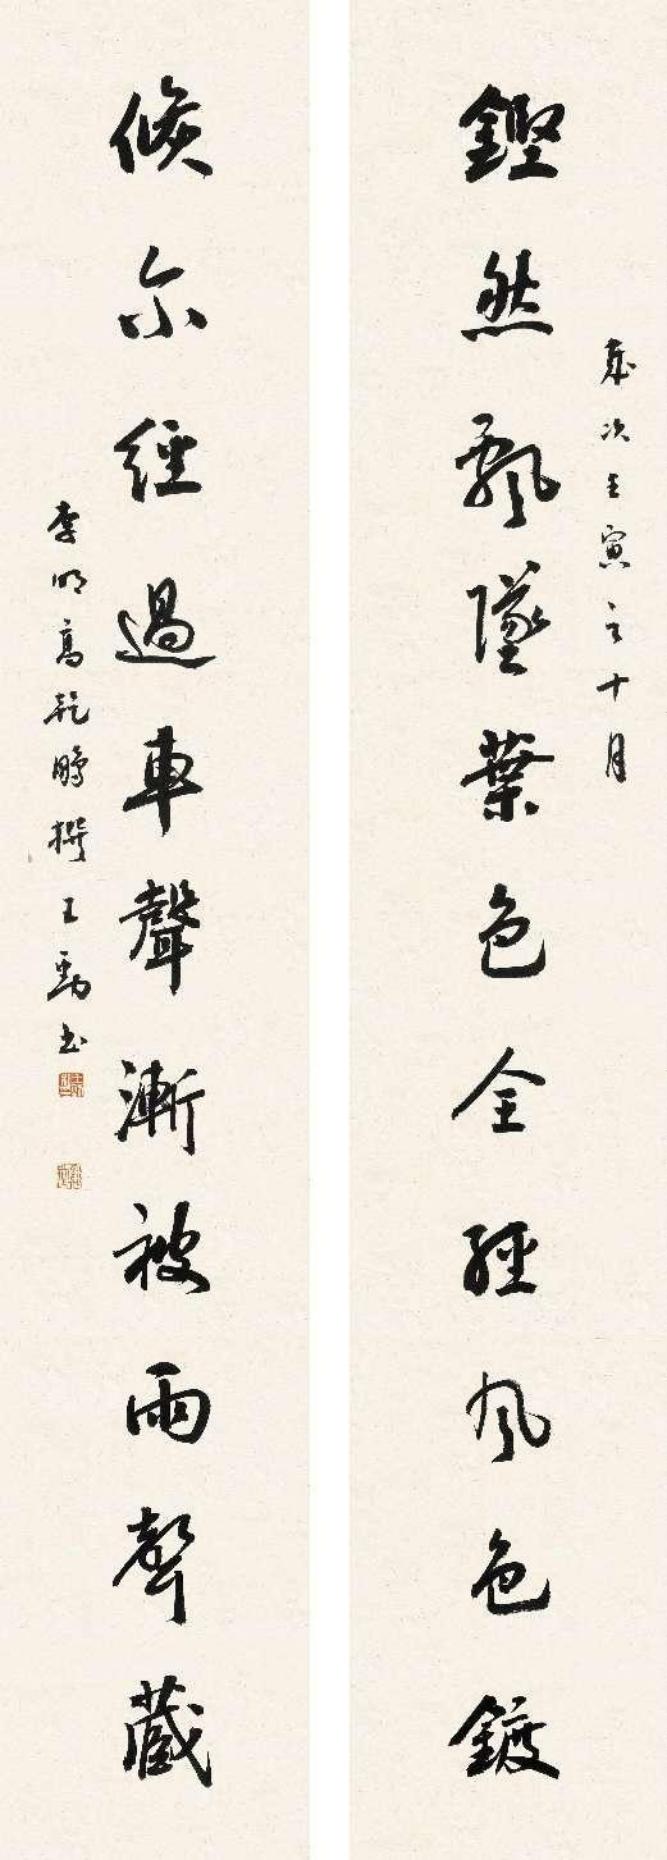 歲次壬寅之十月
鏗然飄墜葉色全經風色鍍
倏尔經過車聲漸被雨聲藏
李明高乾鵬撰王勁书